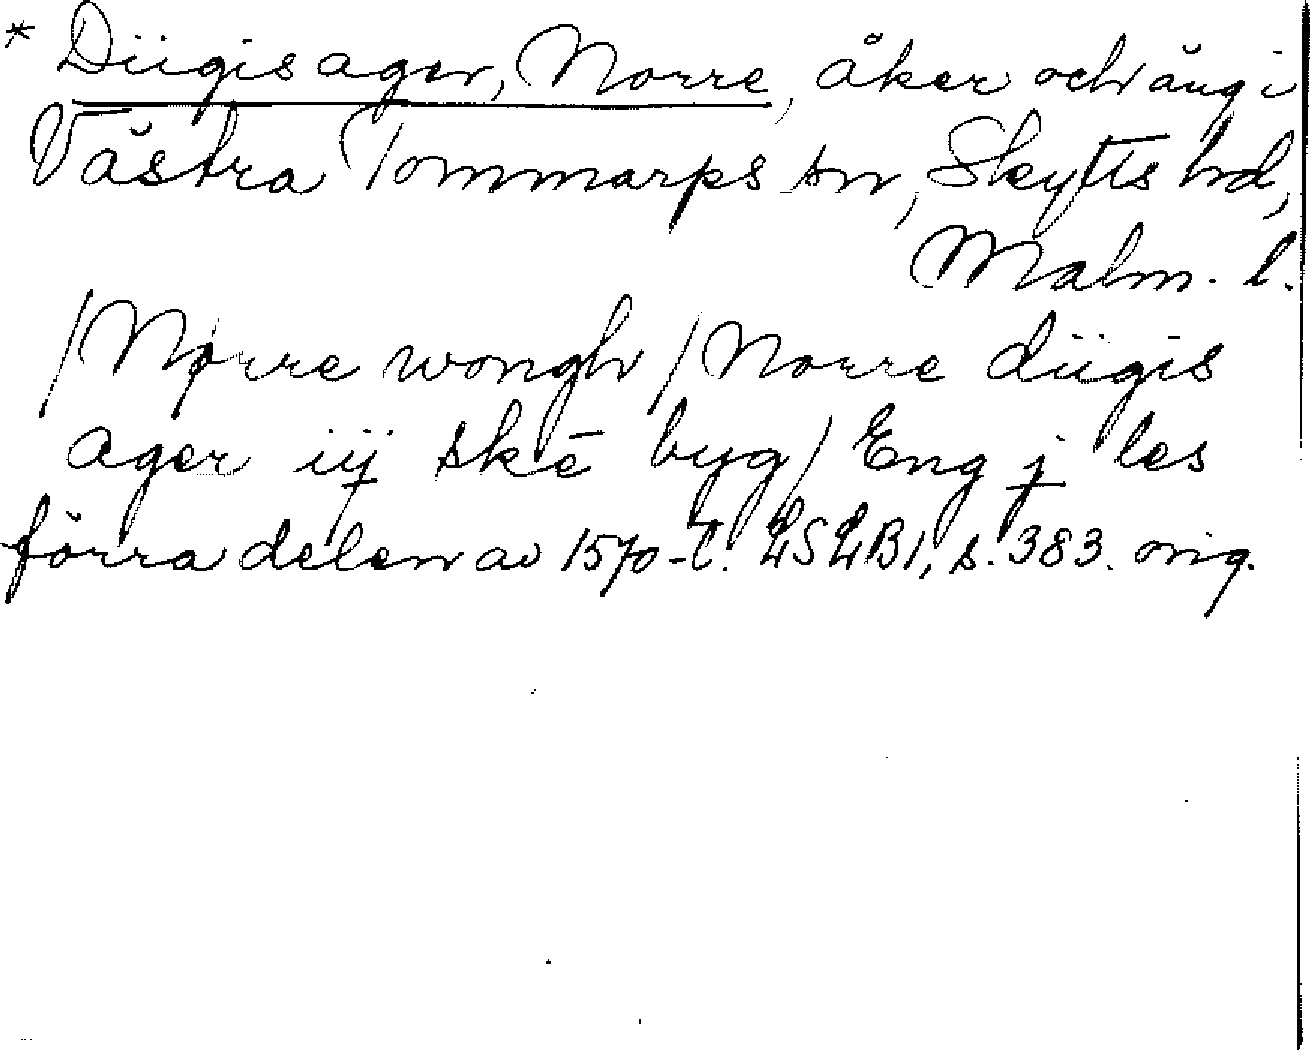 * Diigis ager, Norre, åker och äng i
Västra Tommarps sn, Skytts hd,
Malm. l.
/Nørre wongh/Norre diigis
ager iij skē byg/Eng j les
förra delen av 1570-t. LSLB1, s. 383. orig.